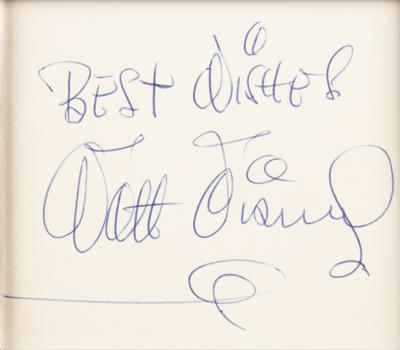 BEST WISHES
Walt Disney